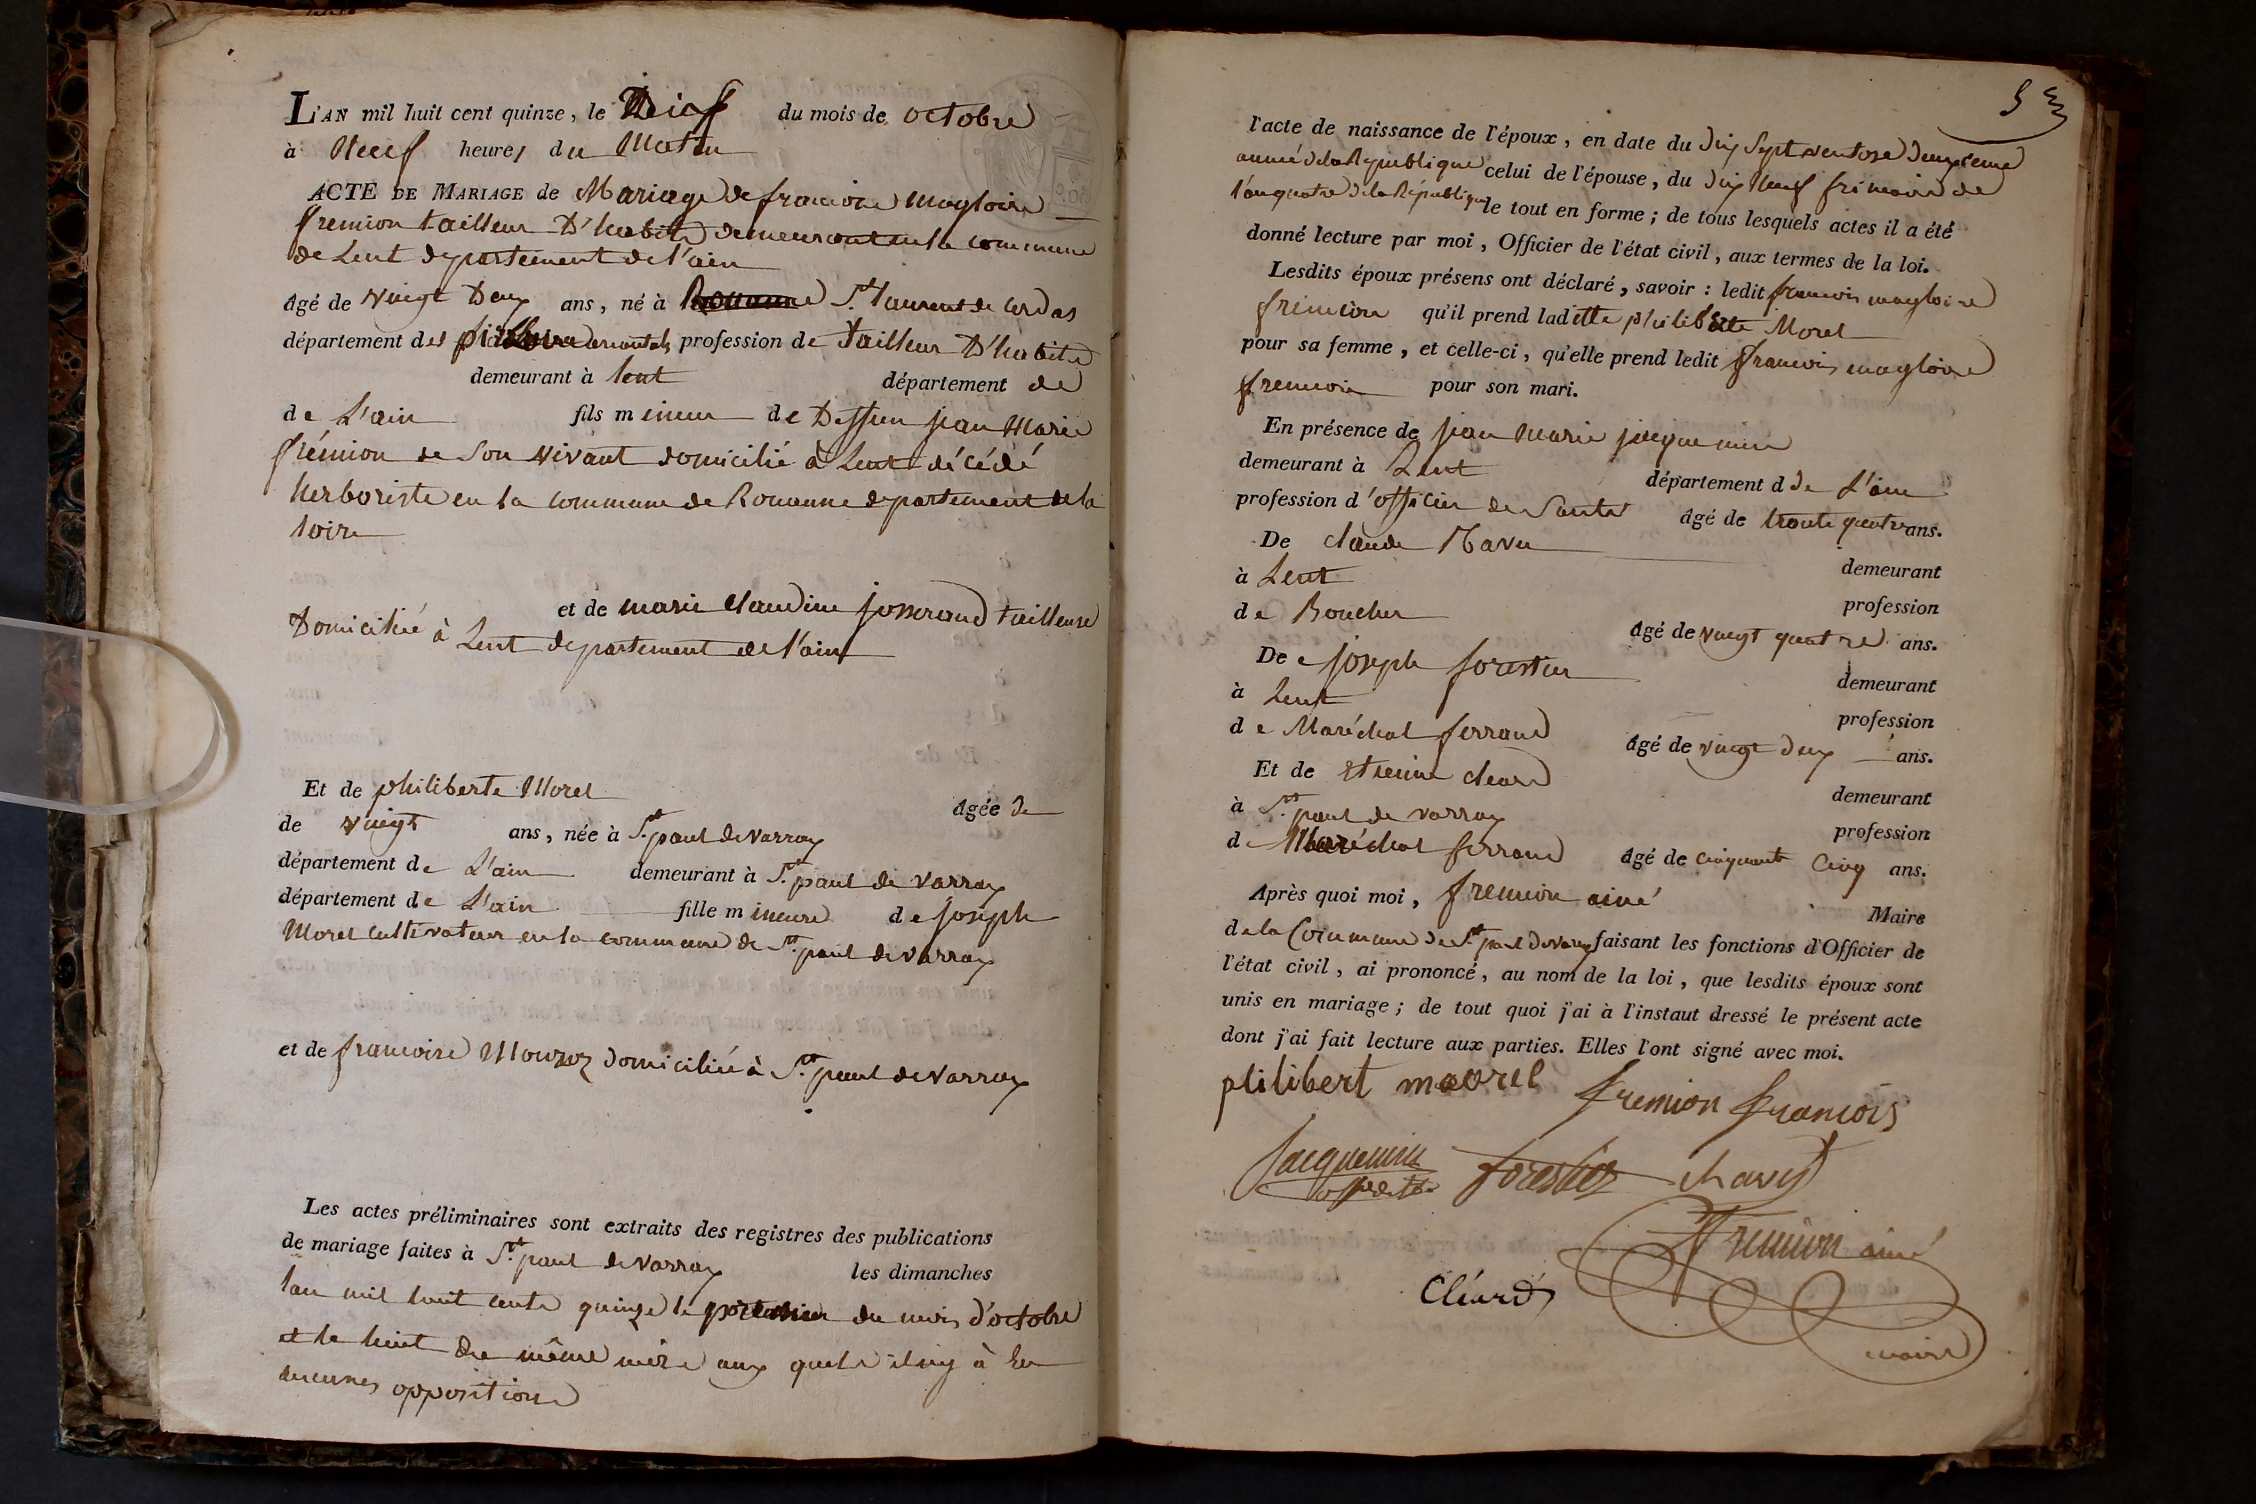 L'AN mil huit cent quinze, le du mois de octobre
à Neuf heures du Matin
ACTE DE MARIAGE de Mariage de francoise magloire
fremion tailleur D'habits demeurant en la commune
de Lent departement de l'ain
âgé de vingt Deux ans, né à St. laurent de Cerdas
département des orientals profession de tailleur D'habits
demeurant à lent département de
de L'ain fils mineur de Deffun jean Marie
frémion de Son vivant domicilié à Lent décédé
herboriste en la commune de Rouanne departement de la
loire
et de marie claudine josserand tailleuse
Domiciliée à Lent departement de l'ain
Et de philiberte Morel âgée de
de vingt ans, née à St. paul de varrax
département de L'ain demeurant à St. paul de varrax
département de L'ain fille mineure de joseph
Morel cultivateur en la commune de St. paul de varrax
et de francoise Mouroz domiciliée à St. paul de varrax
Les actes préliminaires sont extraits des registres des publications
de mariage faites à St. paul de varrax les dimanches
lan mil huit cents quinze le premier du mois d'octobre
et le huit du même mois aux quels il ny à Eu
aucunes opposition
5
l'acte de naissance de l'époux, en date du dix Sept ventose deuxieme
année de la Republique celui de l'épouse, du dix Neuf frimaire de
l'an quatre de la République le tout en forme; de tous lesquels actes il a été
donné lecture par moi, Officier de l'état civil, aux termes de la loi.
Lesdits époux présens ont déclaré, savoir: ledit francois magloire
fremion qu'il prend laditte philiberte Morel
pour sa femme, et celle-ci, qu'elle prend ledit francois magloire
fremion pour son mari.
En présence de jean Marie jacquemin
demeurant à Lent département d de L'ain
profession d'officier de Santé âgé de trente quatre ans.
De claude Ravu demeurant
à Lent profession
de Boucher âgé de vingt quatre ans.
De joseph forestier demeurant
à Lent profession
de Maréchal ferrand âgé de vingt deux ans.
Et de Etienne cleard demeurant
à St. paul de varrax profession
de Maréchal ferrand âgé de cinquante Cinq ans.
Après quoi moi, fremion ainé Maire
de la Commune de St. paul de varax faisant les fonctions d'Officier de
l'état civil, ai prononcé, au nom de la loi, que lesdits époux sont
unis en mariage; de tout quoi j'ai à l'instaut dressé le présent acte
dont j'ai fait lecture aux parties. Elles l'ont signé avec moi.
philibert morel fremion francois
Jacquemin forestier
fremion ainé
Cléard
maire